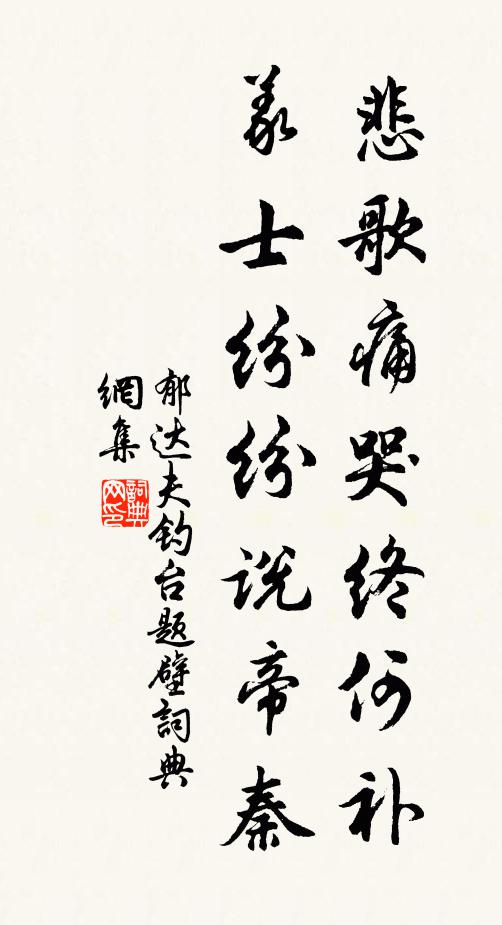 悲歌痛哭终何补
义士纷纷说帝秦
郁达夫钓台题壁詞典
網集
詞典
网印